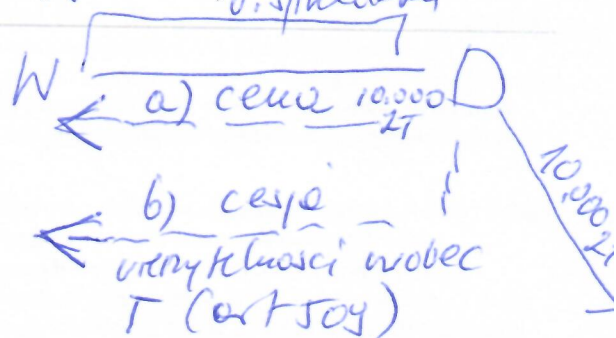 W
D
a) cena 10.000 zł
b) cesja
wierzytelności wobec
T (art 509)
10.000 zł